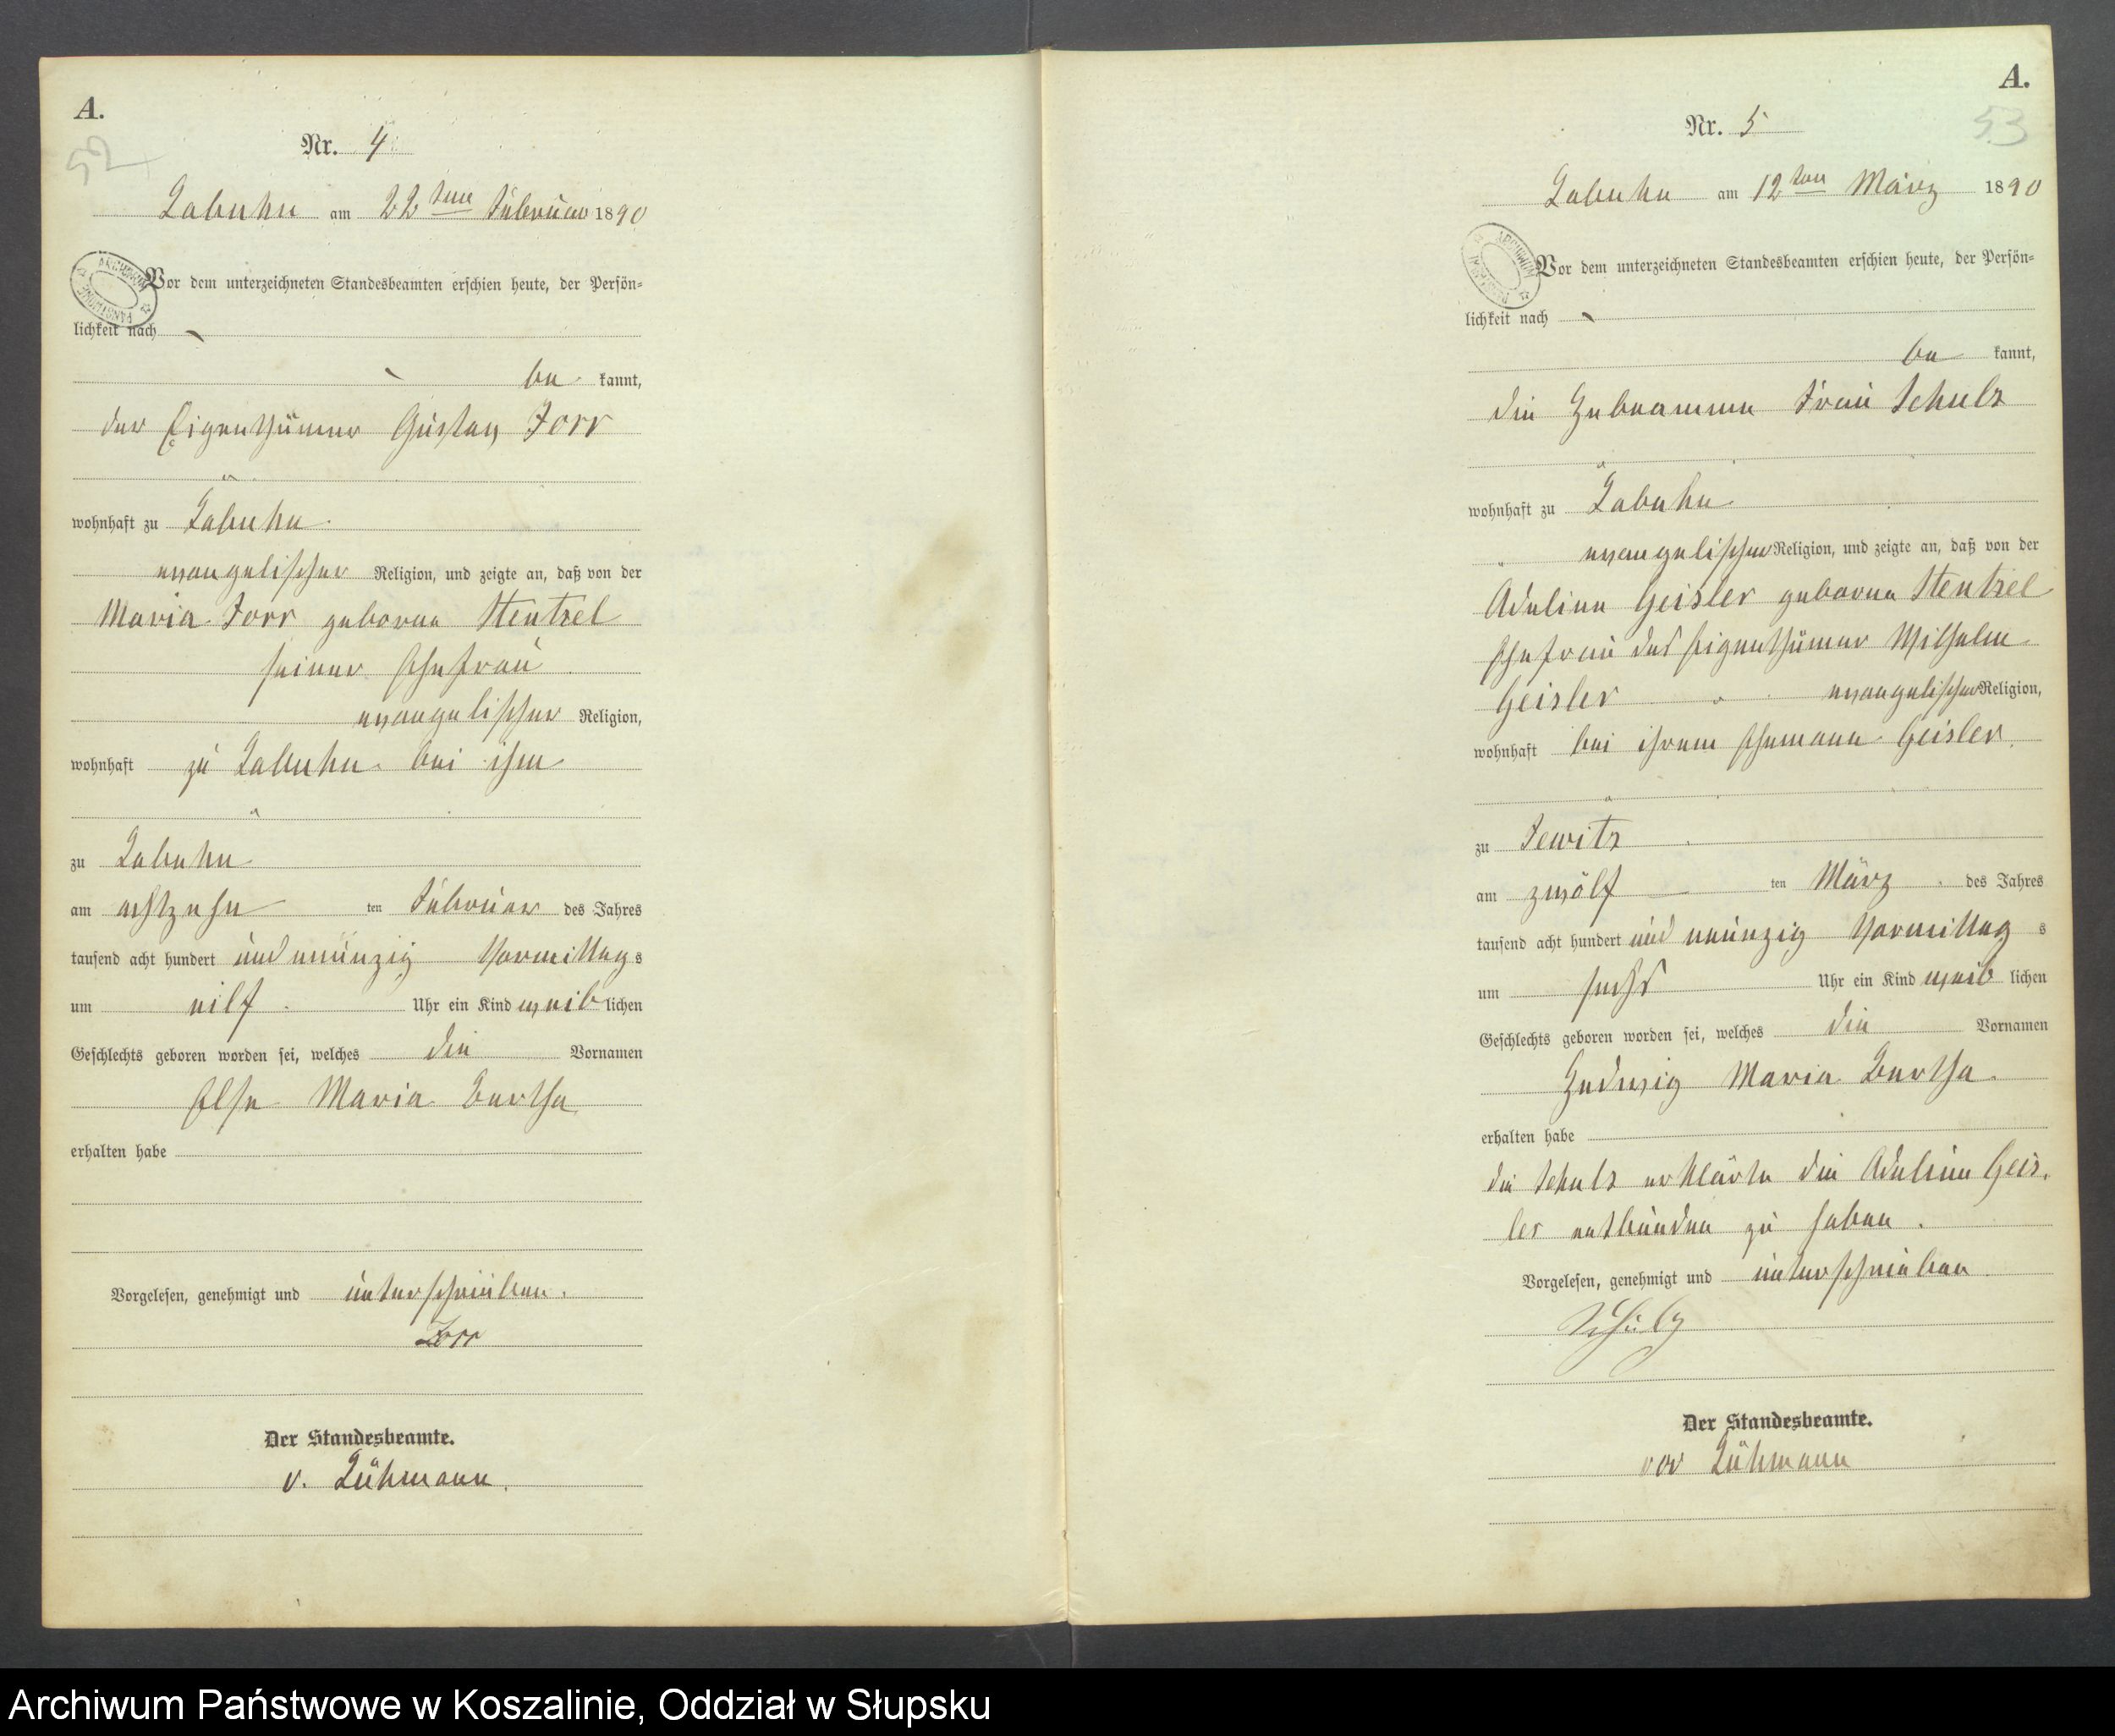 A.
52
Nr. 4
Labuhn am 22ten Februar 1890
Vor dem unterzeichneten Standesbeamten erschien heute, der Persön-
lichkeit nach
be kannt,
der Eigenthümer Gustav Zorr
wohnhaft zu Labuhn
evangelischer Religion, und zeigte an, daß von der
Maria Zorr geborne Stentzel
seiner Ehefrau
evangelischer Religion,
wohnhaft zu Labuhn bei ihm
zu Labuhn
am achtzehn ten Februar des Jahres
tausend acht hundert und neunzig Vormittags
um eilf Uhr ein Kind weiblichen
Geschlechts geboren worden sei, welches die Vornamen
Else Maria Bertha
erhalten habe
Vorgelesen, genehmigt und unterschrieben.
Zorr
Der Standesbeamte.
v. Lühmann.
A.
53
Nr. 5
Labuhn am 12ten März 1890
ARCHIWUM
Vor dem unterzeichneten Standesbeamten erschien heute, der Persön-
lichkeit nach
be kannt,
die Hebeamme Frau Schulz
wohnhaft zu Labuhn
evangelischer Religion, und zeigte an, daß von der
Adeline Geisler geborne Stentzel
Ehefrau des Eigenthümer Wilhelm
Geisler evangelischer Religion,
wohnhaft bei ihrem Ehemann Geisler.
zu
am zwölf ten März des Jahres
tausend acht hundert und neunzig Vormittag s
um sechs Uhr ein Kind weib lichen
Geschlechts geboren worden sei, welches die Vornamen
Hedwig Maria Bertha
erhalten habe
die Schulz erklärte die Adeline Geis-
ler entbunden zu haben.
Vorgelesen, genehmigt und unterschrieben
Schulz
Der Standesbeamte.
von Lühmann
Archiwum Państwowe w Koszalinie, Oddział w Słupsku